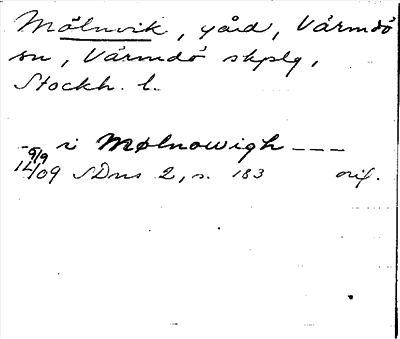 Mölnvik, gård, Värmdö
sn, Värmdö skplg,
Stockh. l.
- i Mølnowigh ---
9/9
1409 SDns 2, s. 183 orig.